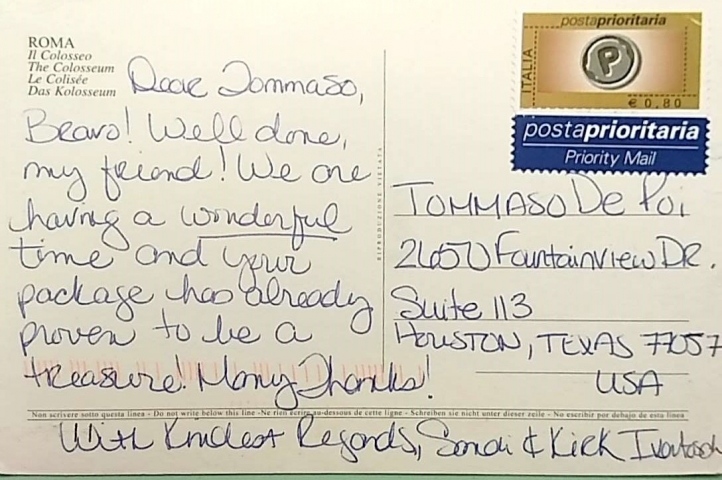 ROMA
Il Colosseo
The Colosseum
Le Colisée
Das Kolosseum
Dear Tommaso,
Bravo! Well done,
my friend! We are
having a wonderful
time and your
package has already
proven to be a
treasure! Many Thanks!
With Kindest Regards, Sandi & Kirk
RIPRODUZIONE VIETATA
postaprioritaria
P
ITALIA
€ 0,80
postaprioritaria
Priority Mail
TOMMASO De Poi
2650 Fountainview DR.
Suite 113
HOUSTON, TEXAS 77057
USA
Non scrivere sotto questa linea - Do not write below this line - Ne rien écrire au-dessous de cette ligne - Schreiben sie nicht unter dieser zeile - No escribir por debajo de esta linea